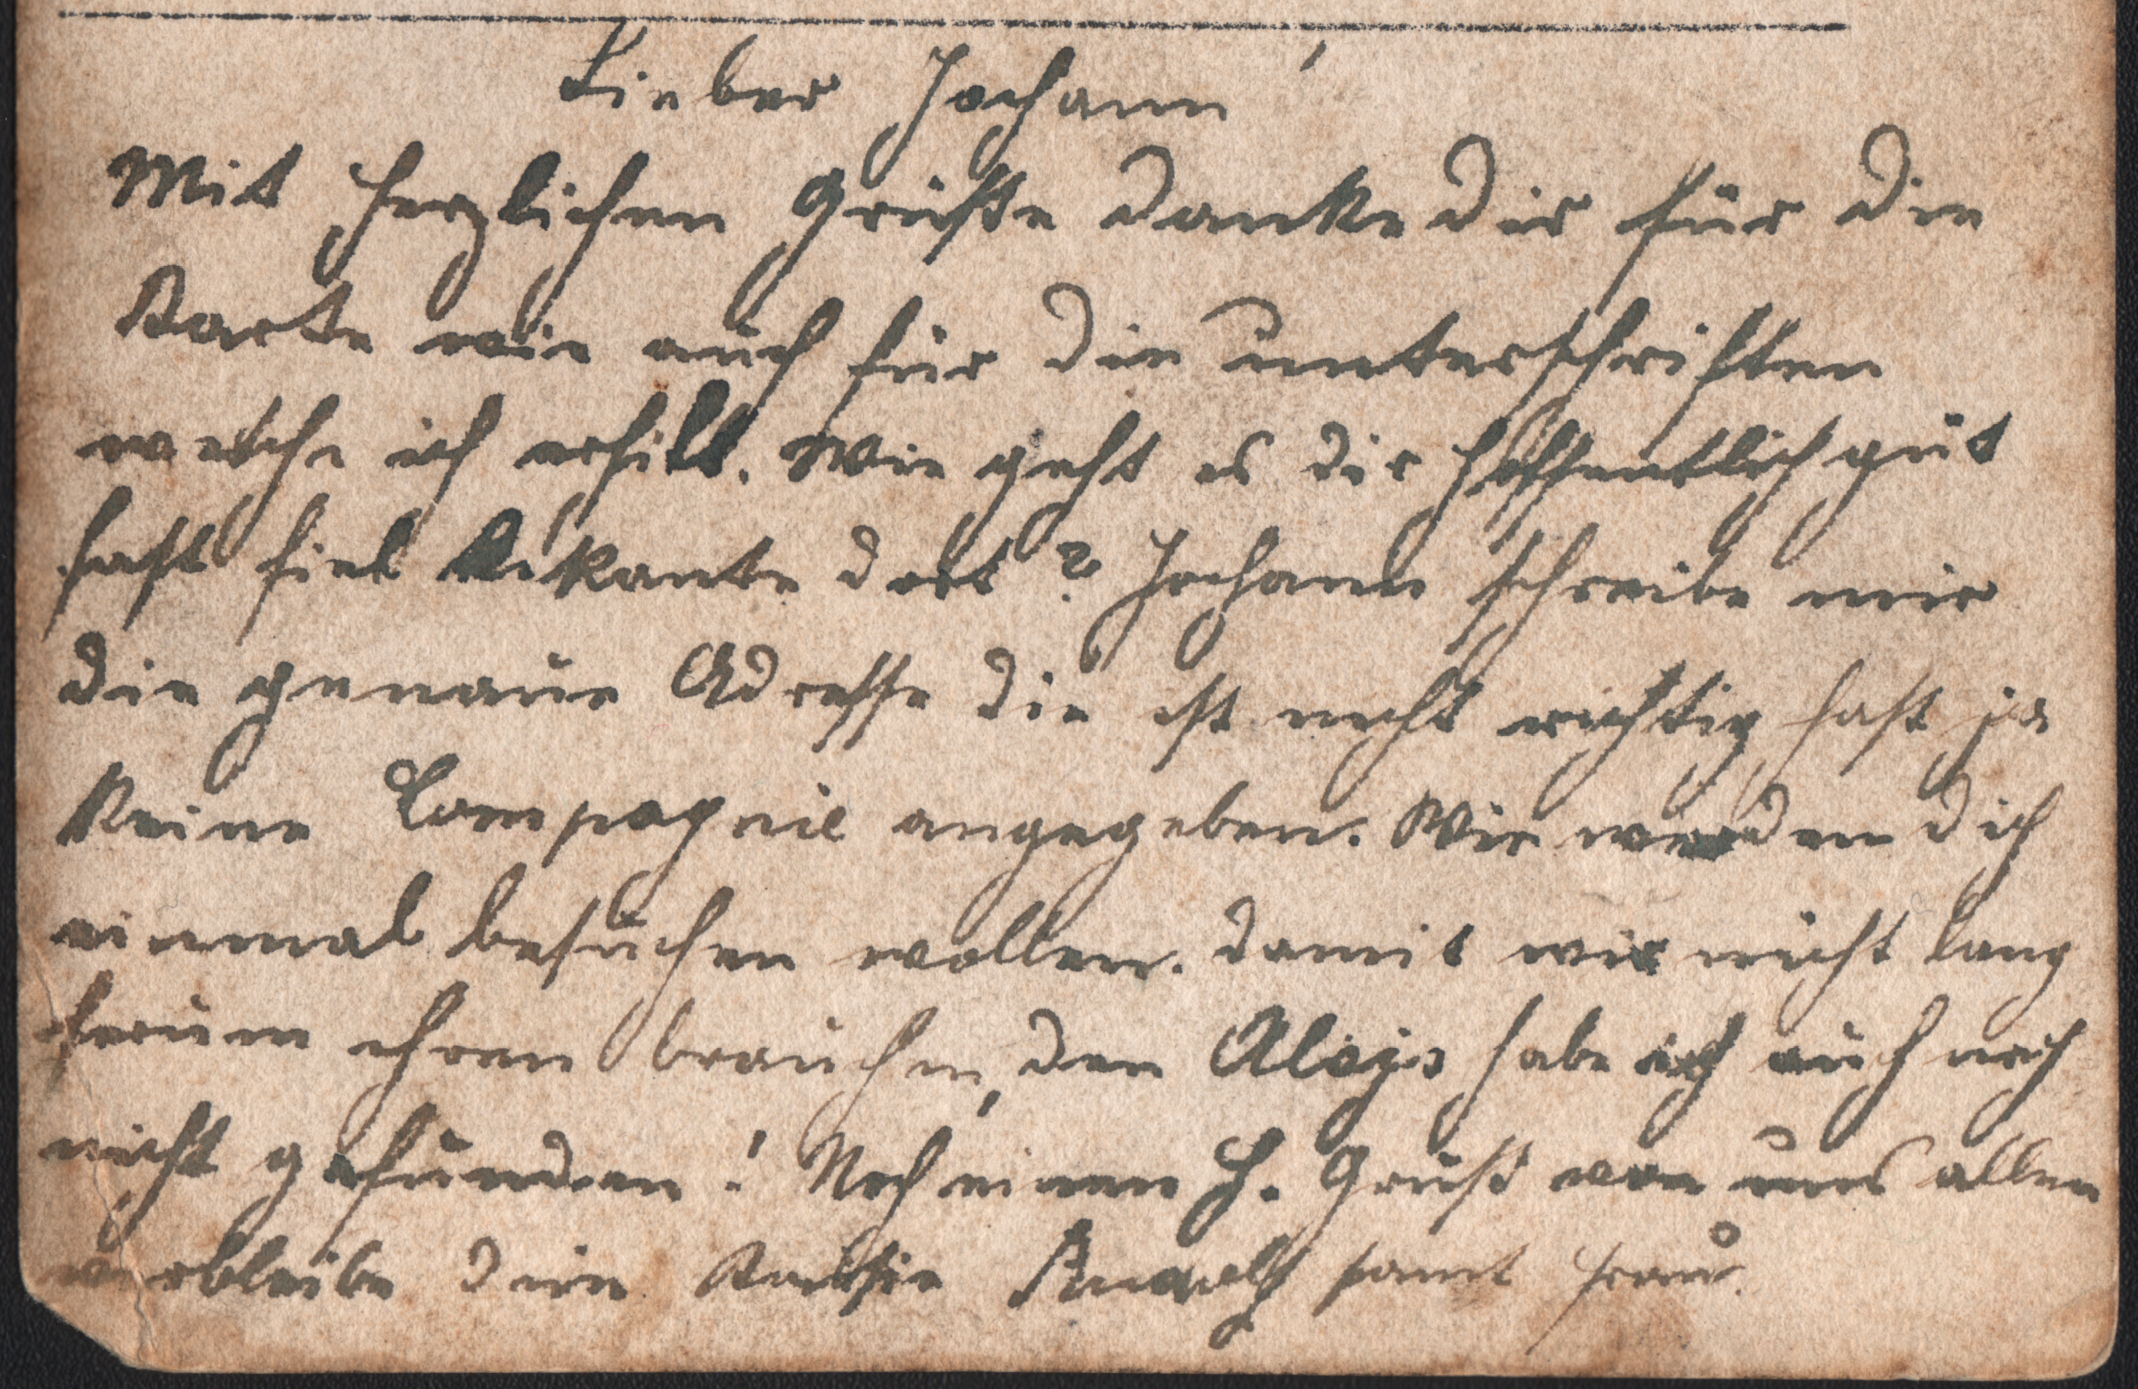 Lieber Johann!
Mit herzlichen Grüße danke dir für die
Karte wie auch für die unterschriften
welche ich erhilt. Wie geht es dir hoffentlich gut
hast fiel bikante dort? Johann schreibe mir
die genaue Adresse die ist nicht richtig hast ja
keine Compagnie angegeben. Wir werden dich
einmal besuchen wollen. damit wir nicht lang
herum ihren brauchen, den Alojs habe ich auch noch
nicht gefunden! Noch einen H. Gruß von uns allen
verbleibe dein Rudolf samt frau.